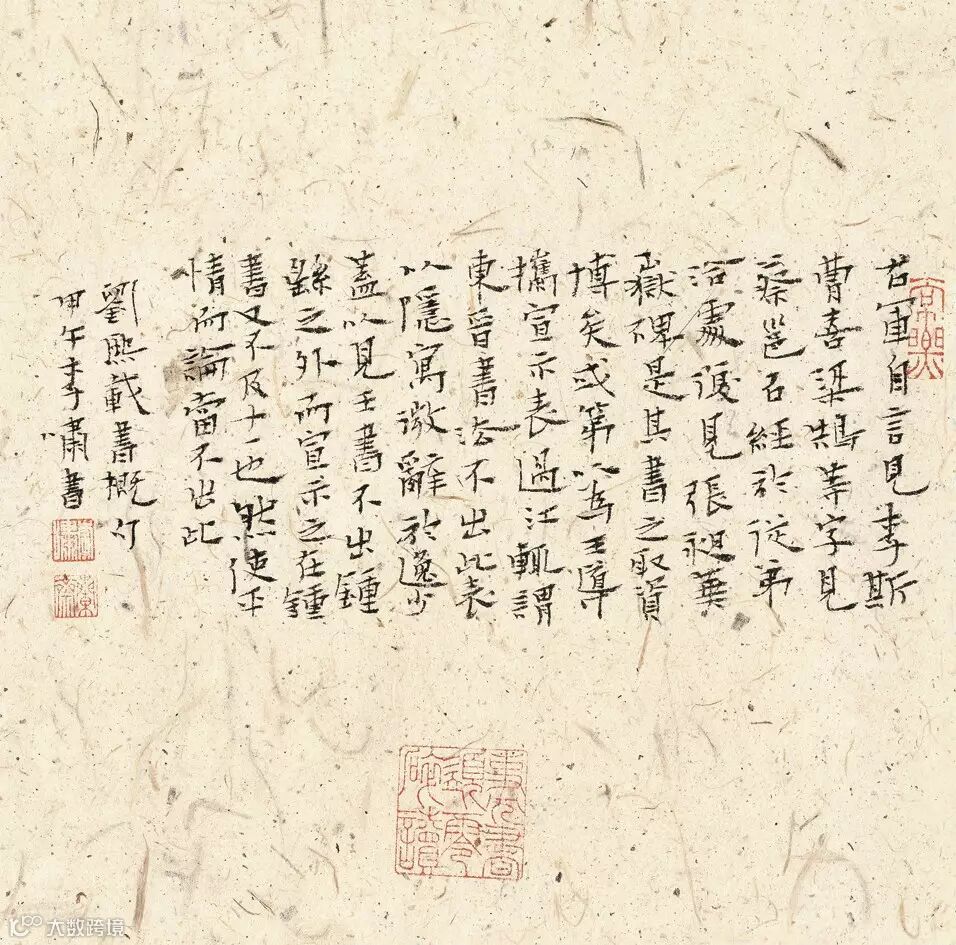 右軍自言見李斯
曹喜梁鵠等字見
蔡邕石經於從弟
洽處復見張昶華
嶽碑是其書之取資
博矣或第以為王導
攜宣示表過江輒謂
東晉書法不出此表
以隱寓微辭於逸少
蓋以見王書不出鍾
繇之外而宣示之在鍾
書又不及十一也然使平
情而論當不出此
劉熙載書概句
甲午李嘯書
大数跨境